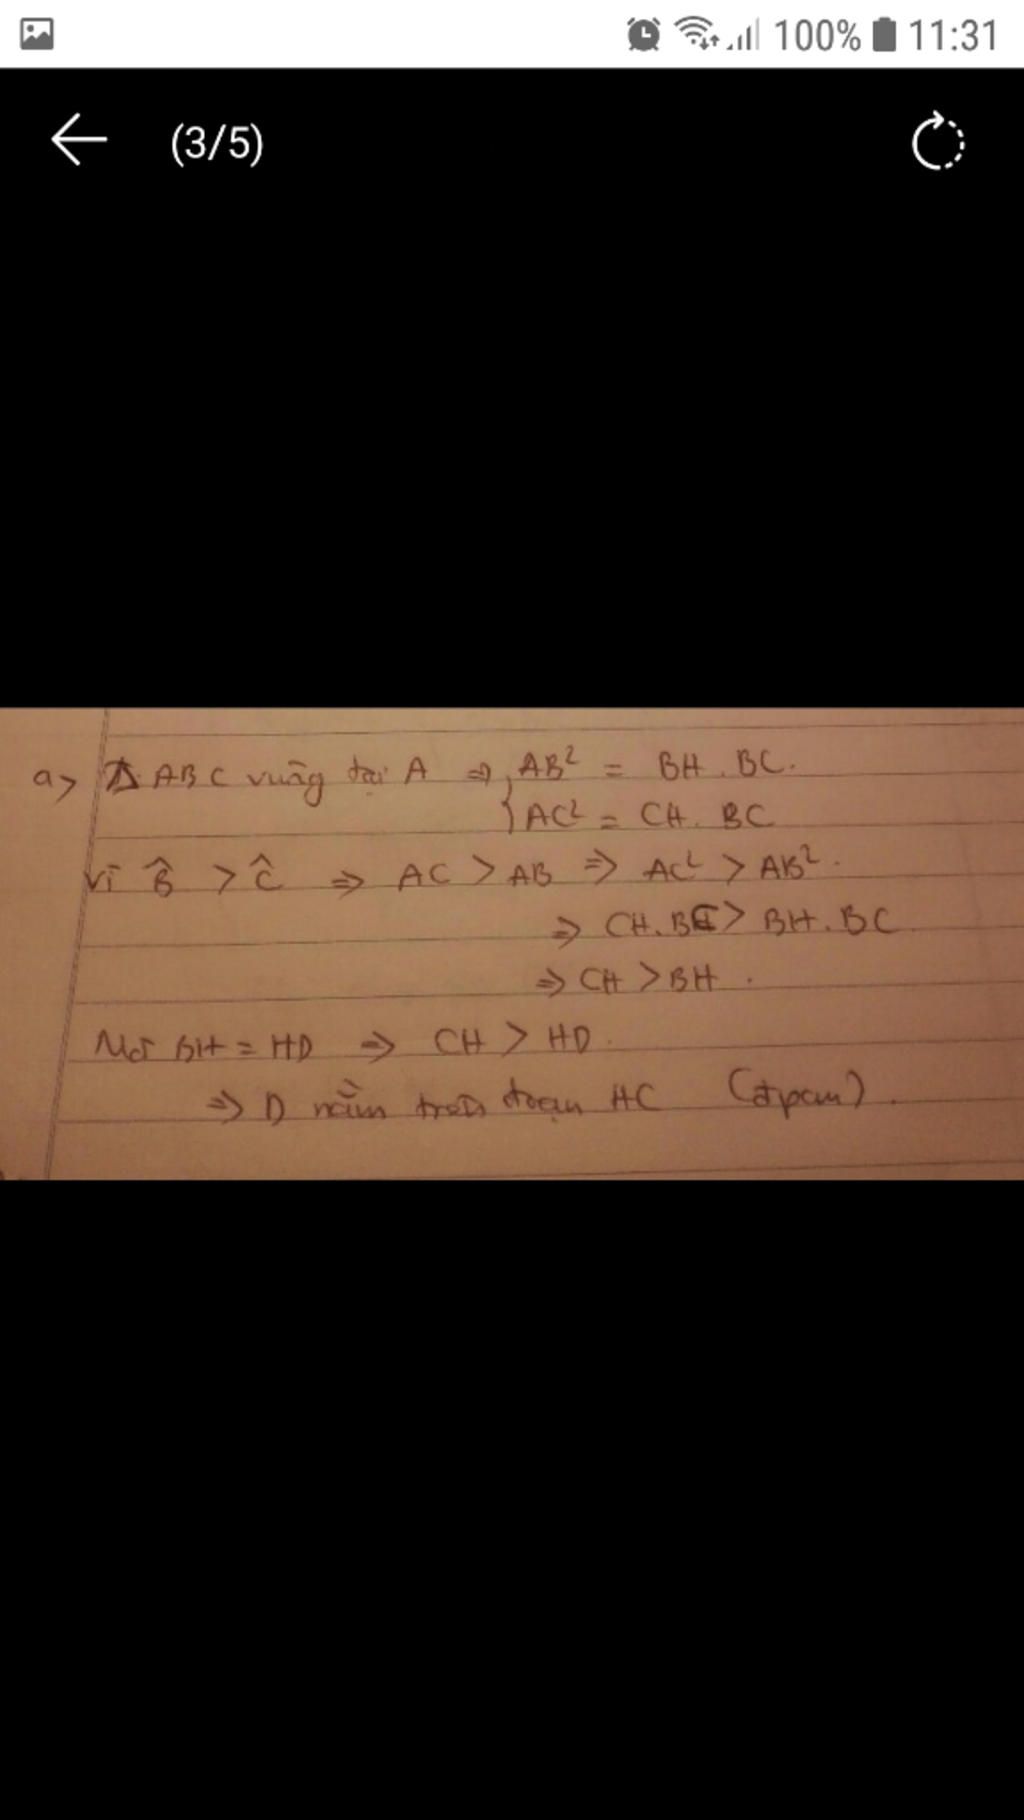 100% 11:31
(3/5)
a> Δ ABC vuông tại A ⇒ { AB² = BH . BC.
AC² = CH . BC
Vì B̂ > Ĉ ⇒ AC > AB ⇒ AC² > AB².
⇒ CH . BC > BH . BC
⇒ CH > BH .
Mà BH = HD ⇒ CH > HD.
⇒ D nằm trên đoạn HC (đpcm) .